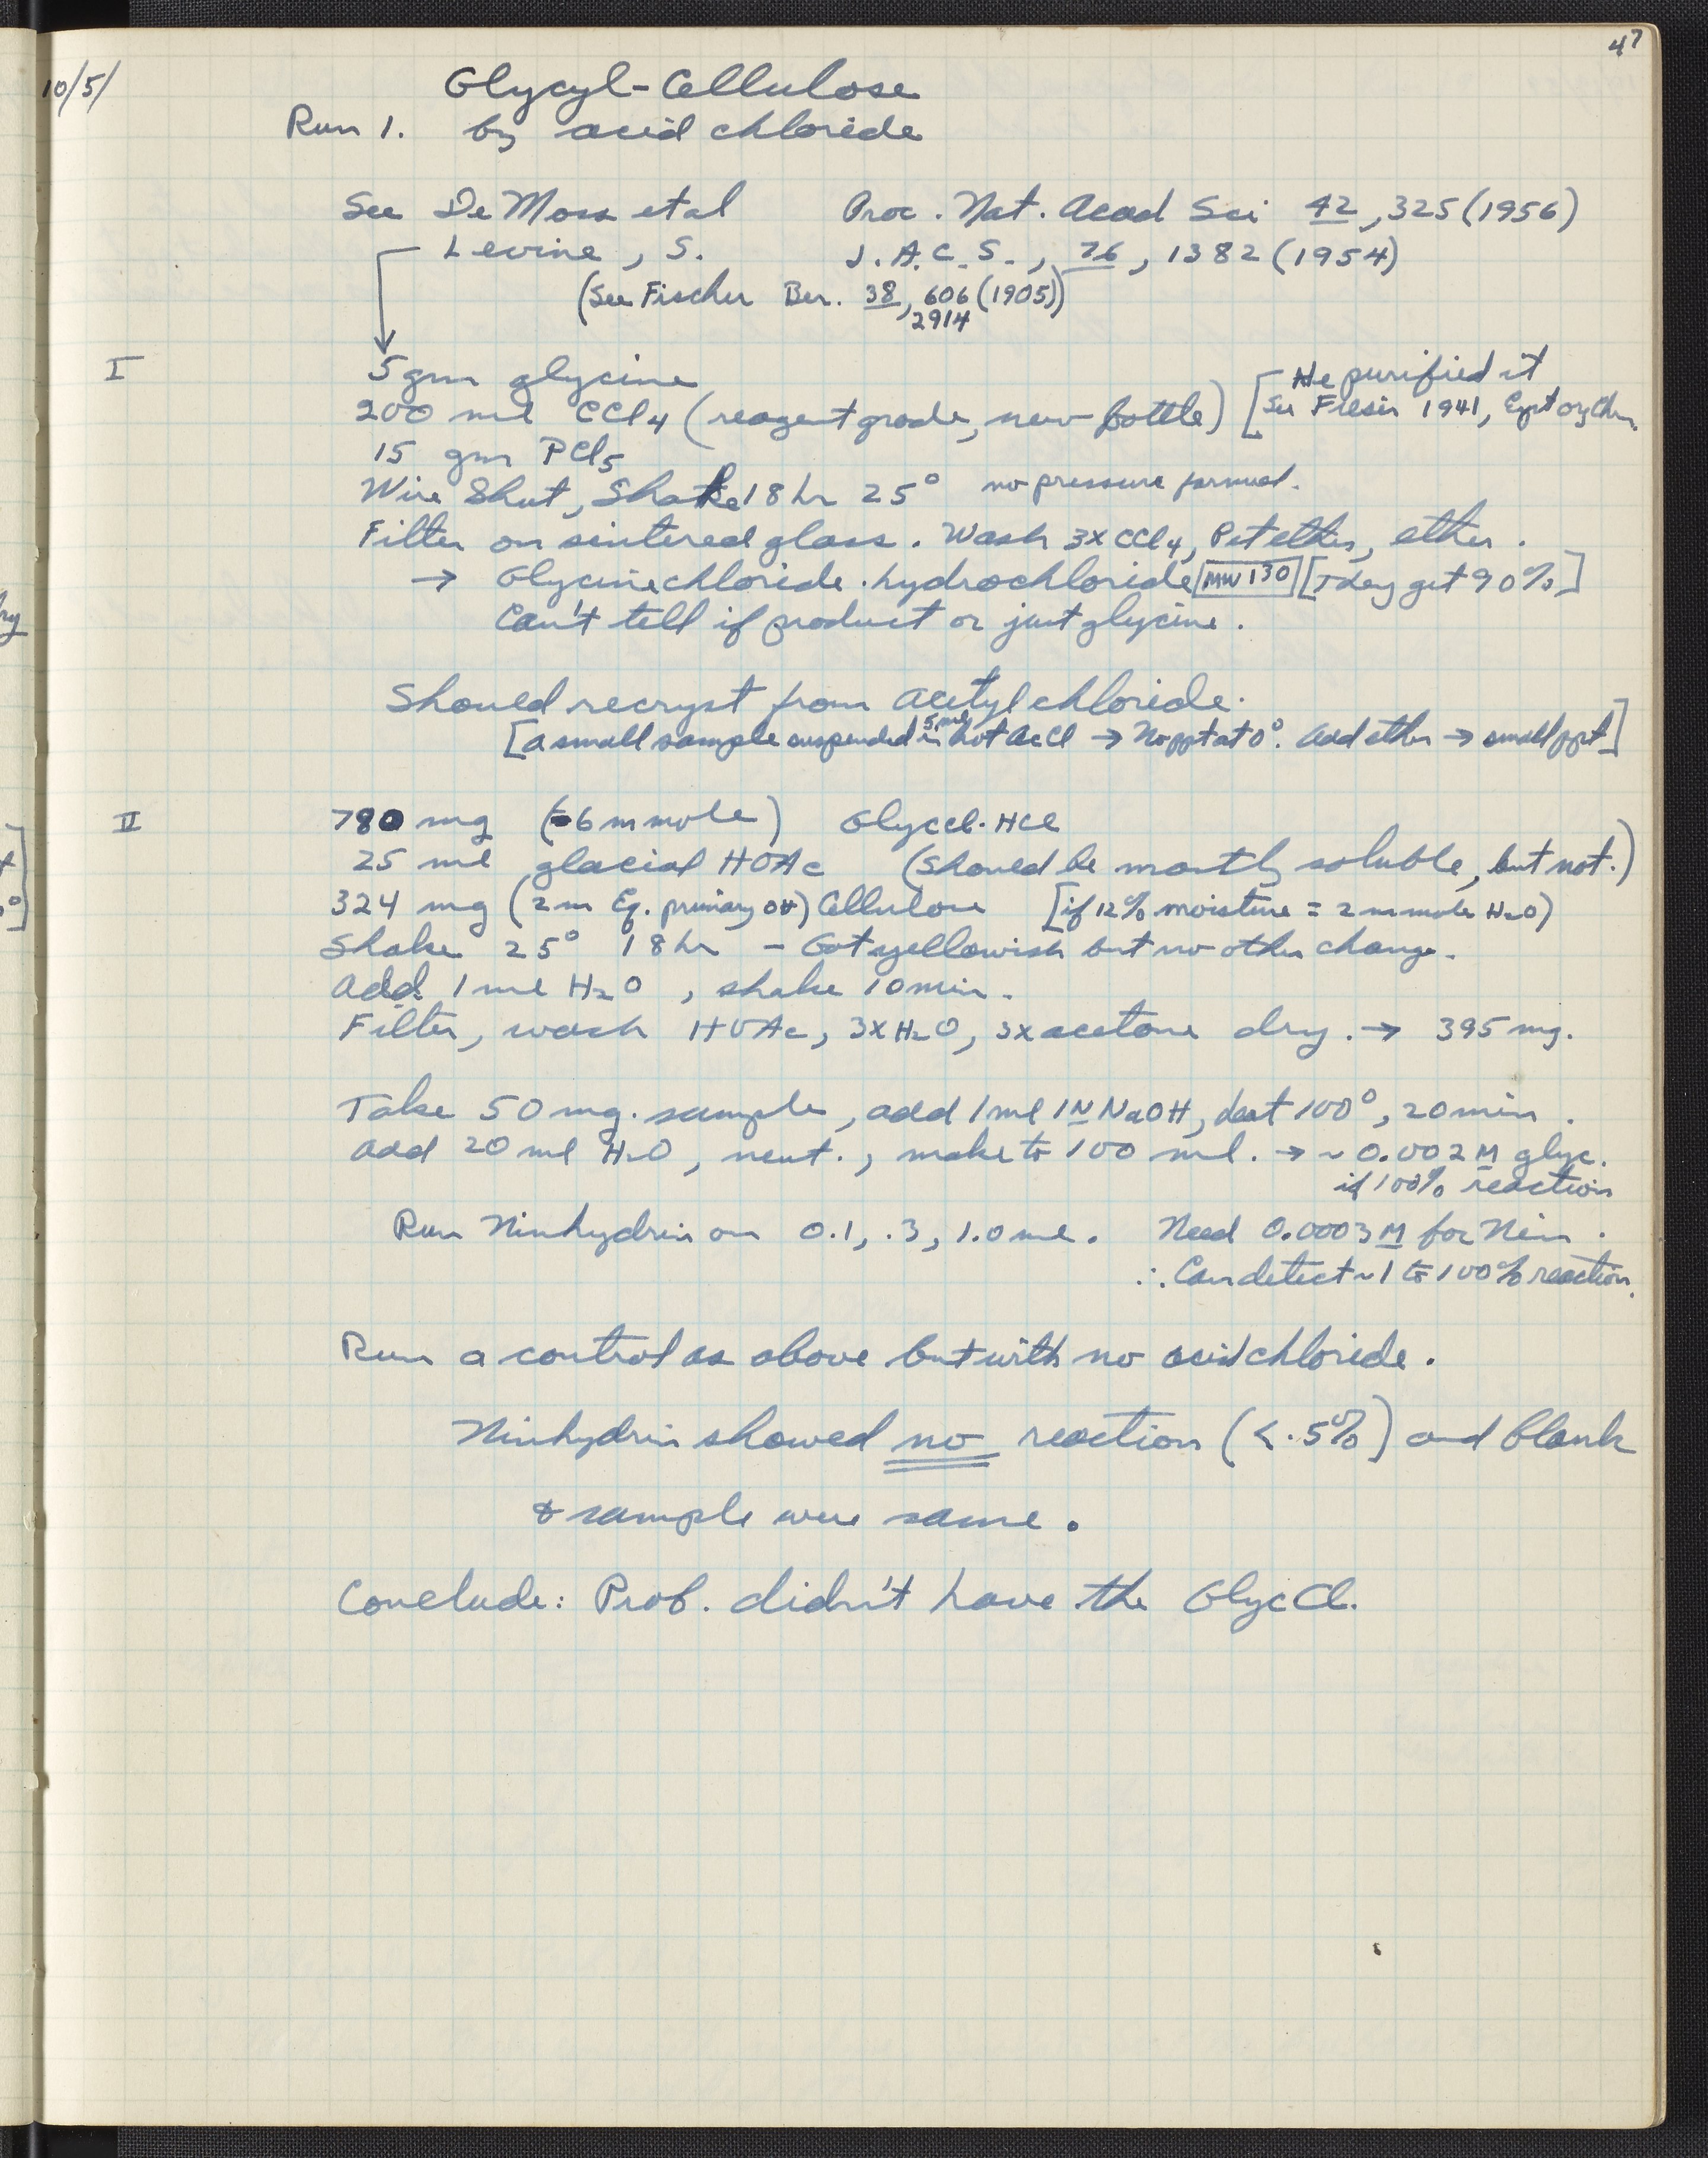 47
10/5/
Glycyl-Cellulose
Run 1. by acid chloride
See DeMoss et al Proc. Nat. Acad Sci 42, 325 (1956)
Levine, S. J.A.C.S., 76, 1382 (1954)
(See Fischer Ber. 38, 606 (1905))
2914
I
5 gm glycine
200 ml CCl4 (reagent grade, new bottle) [He purified it
See Fieser 1941, Expt Org Chem.
15 gm PCl5
Wire Shut, Shake 18 hr 25° no pressure formed.
Filter on sintered glass. Wash 3x CCl4, Pet ether, ether.
→ Glycinechloride.hydrochloride MW 130 [They get 90%]
Can't tell if product or just glycine.
Should recryst from acetyl chloride.
[a small sample suspended in 5 ml hot AcCl → No ppt at 0°. Add ether → small ppt]
II 780 mg (6 m mole) Glyccl.HCl
25 ml glacial HOAc (Should be mostly soluble, but not.)
324 mg (2 m Eq. primary OH) Cellulose [if 12% moisture = 2 m mole H2O)
Shake 25° 18 hr - Got yellowish but no other change.
Add 1 ml H2O, shake 10 min.
Filter, wash HOAc, 3x H2O, 3x acetone dry. → 395 mg.
Take 50 mg. sample, add 1 ml 1N NaOH, heat 100°, 20 min.
Add 20 ml H2O, neut., make to 100 ml. → ~ 0.002 M glyc.
if 100% reaction
Run Ninhydrin on 0.1, .3, 1.0 ml. Need 0.0003 M for Nin.
∴ Can detect ~ 1 to 100% reaction.
Run a control as above but with no acid chloride.
Ninhydrin showed no reaction (<.5%) and blank
& sample were same.
Conclude: Prob. didn't have the GlycCl.